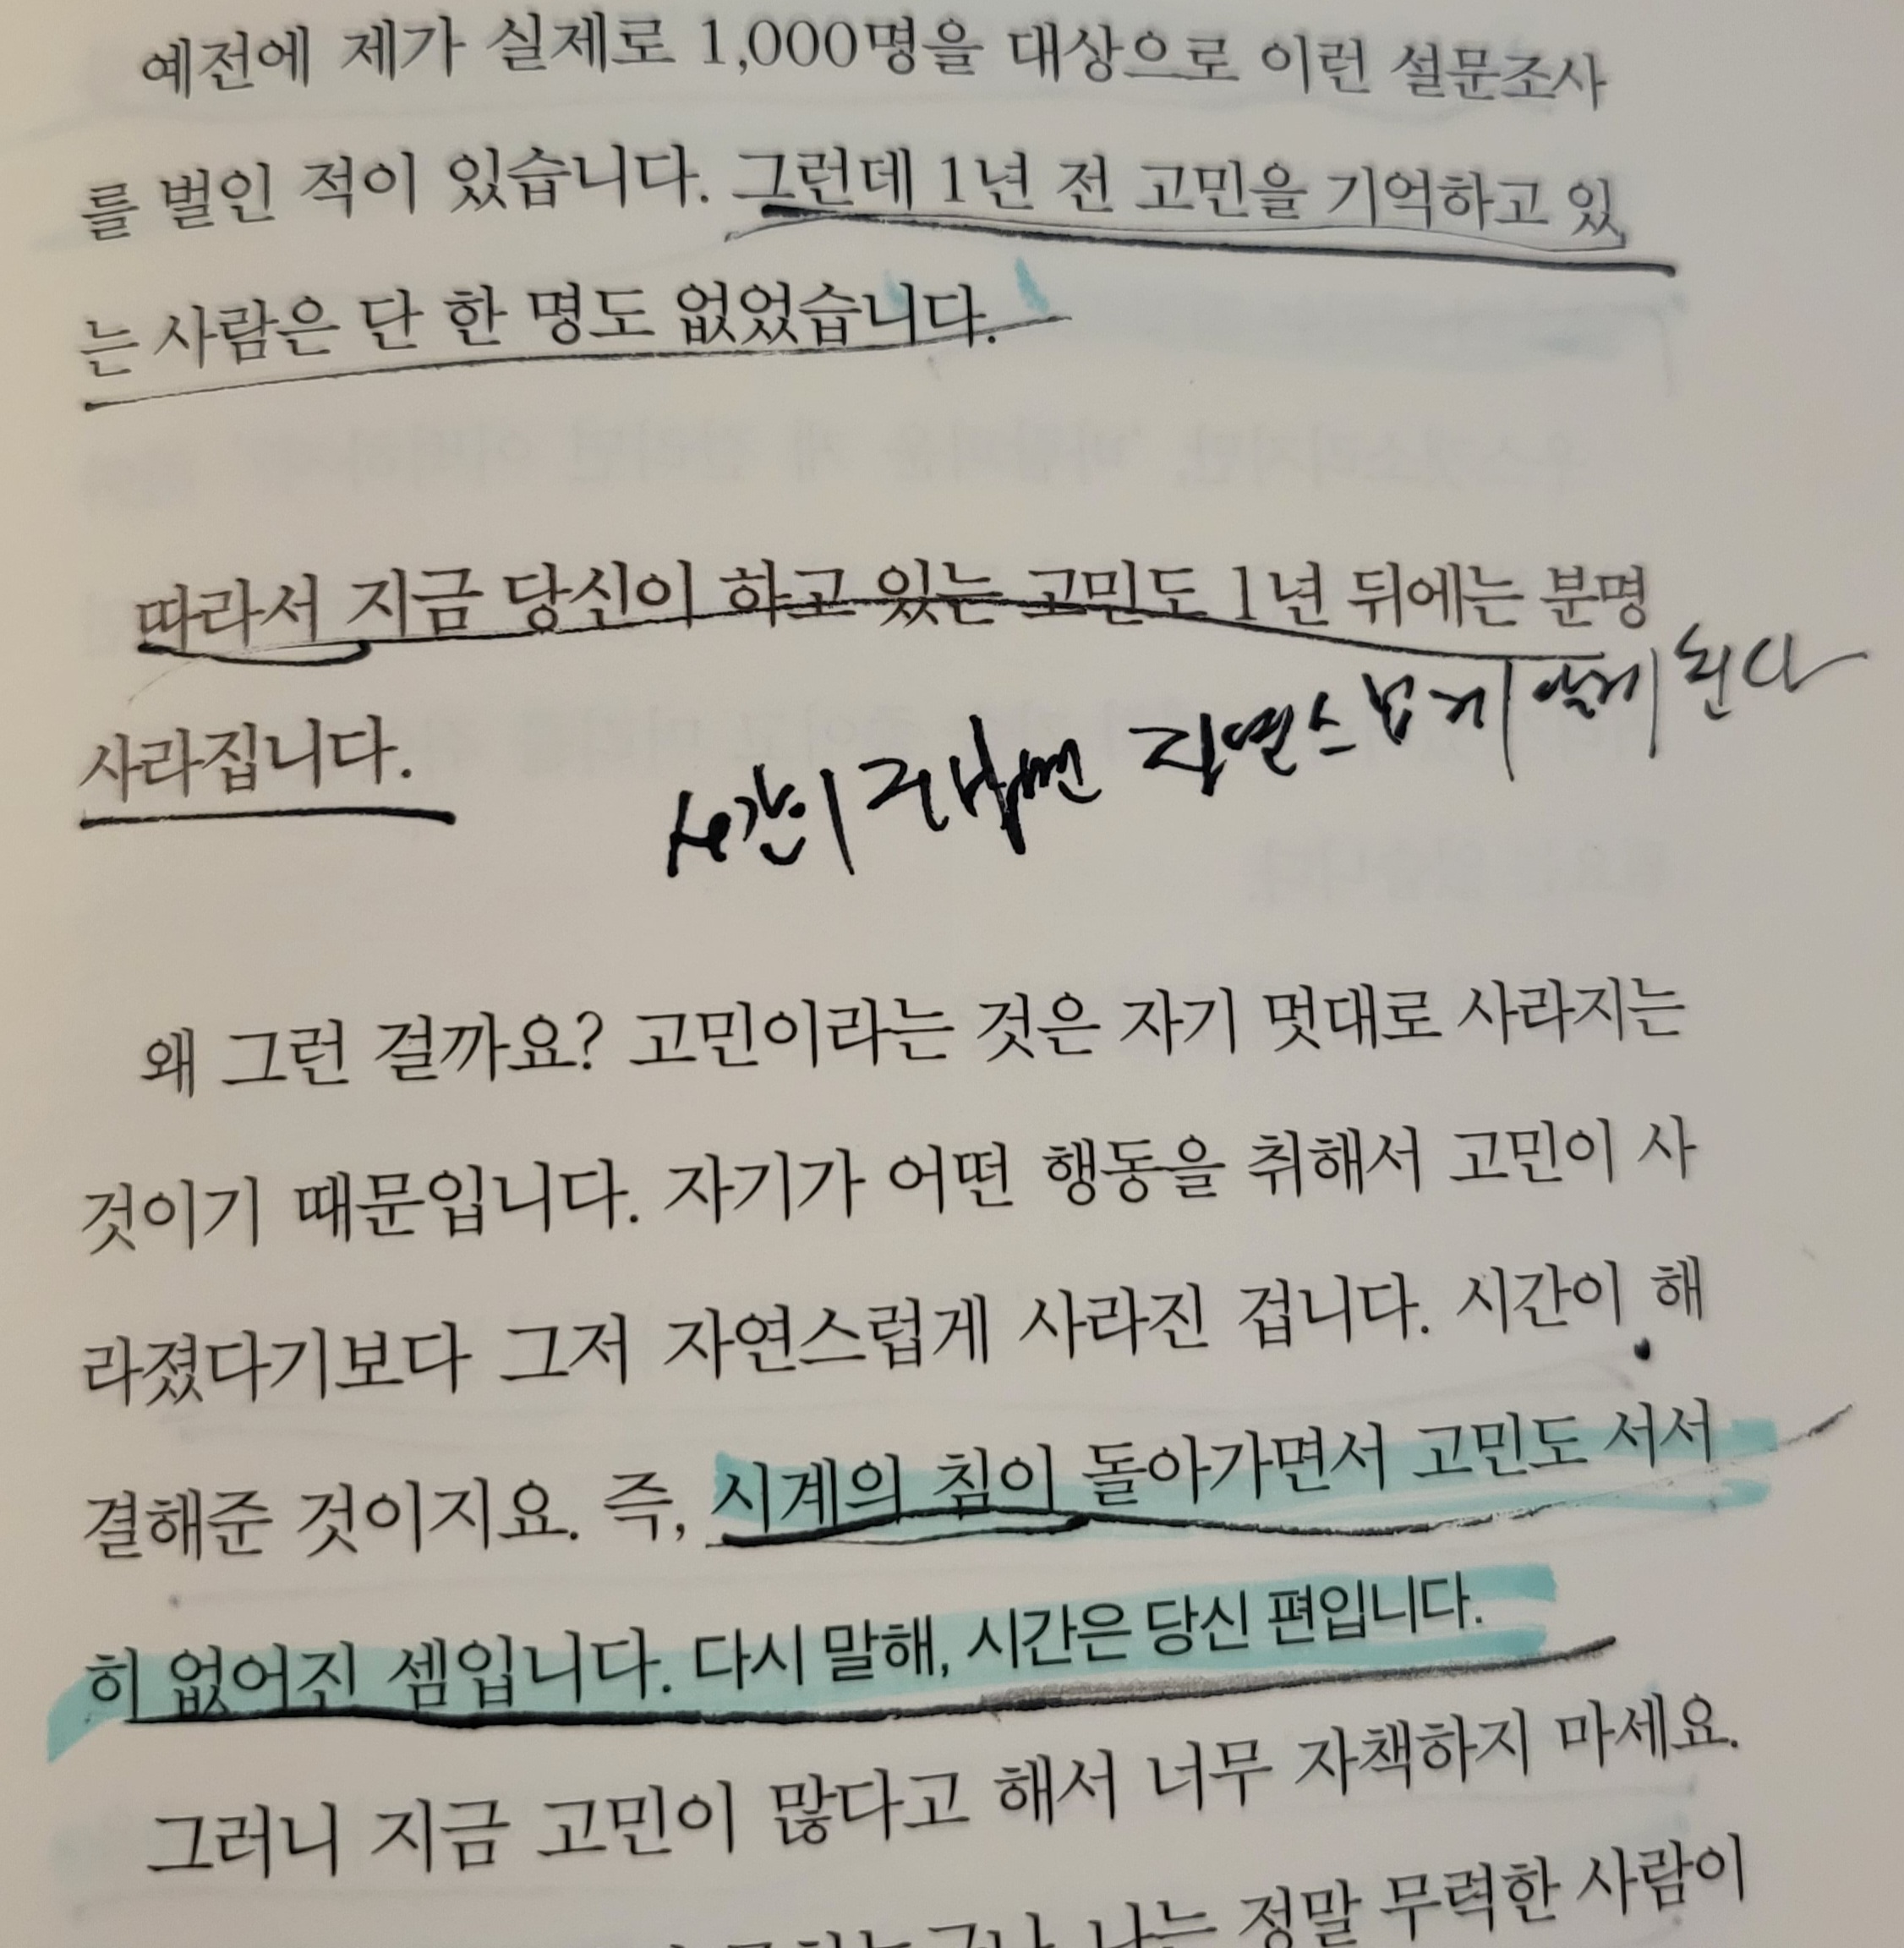 예전에 제가 실제로 1,000명을 대상으로 이런 설문조사
를 벌인 적이 있습니다. 그런데 1년 전 고민을 기억하고 있
는 사람은 단 한 명도 없었습니다.
따라서 지금 당신이 하고 있는 고민도 1년 뒤에는 분명
사라집니다.
시간이 지나면 자연스럽게 알게 된다
왜 그런 걸까요? 고민이라는 것은 자기 멋대로 사라지는
것이기 때문입니다. 자기가 어떤 행동을 취해서 고민이 사
라졌다기보다 그저 자연스럽게 사라진 겁니다. 시간이 해
결해준 것이지요. 즉, 시계의 침이 돌아가면서 고민도 서서
히 없어진 셈입니다. 다시 말해, 시간은 당신 편입니다.
그러니 지금 고민이 많다고 해서 너무 자책하지 마세요.
나는 정말 무력한 사람이